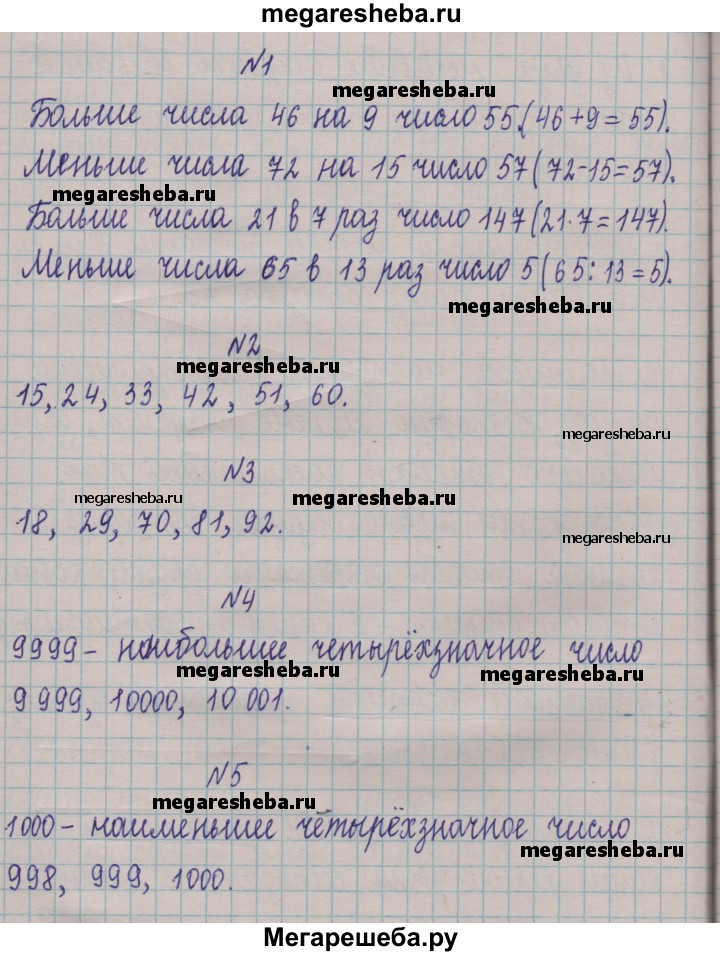 megaresheba.ru
№1
megaresheba.ru
Больше числа 46 на 9 число 55 (46+9=55).
Меньше числа 72 на 15 число 57 (72-15=57).
megaresheba.ru
Больше числа 21 в 7 раз число 147 (21·7=147).
Меньше числа 65 в 13 раз число 5 (65:13=5).
megaresheba.ru
№2
megaresheba.ru
15, 24, 33, 42, 51, 60.
megaresheba.ru
№3
megaresheba.ru megaresheba.ru
18, 29, 70, 81, 92.
megaresheba.ru
№4
9999 - наибольшее четырёхзначное число
megaresheba.ru megaresheba.ru
9 999, 10000, 10 001.
№5
megaresheba.ru
1000 - наименьшее четырёхзначное число
megaresheba.ru
998, 999, 1000.
Мегарешеба.ру